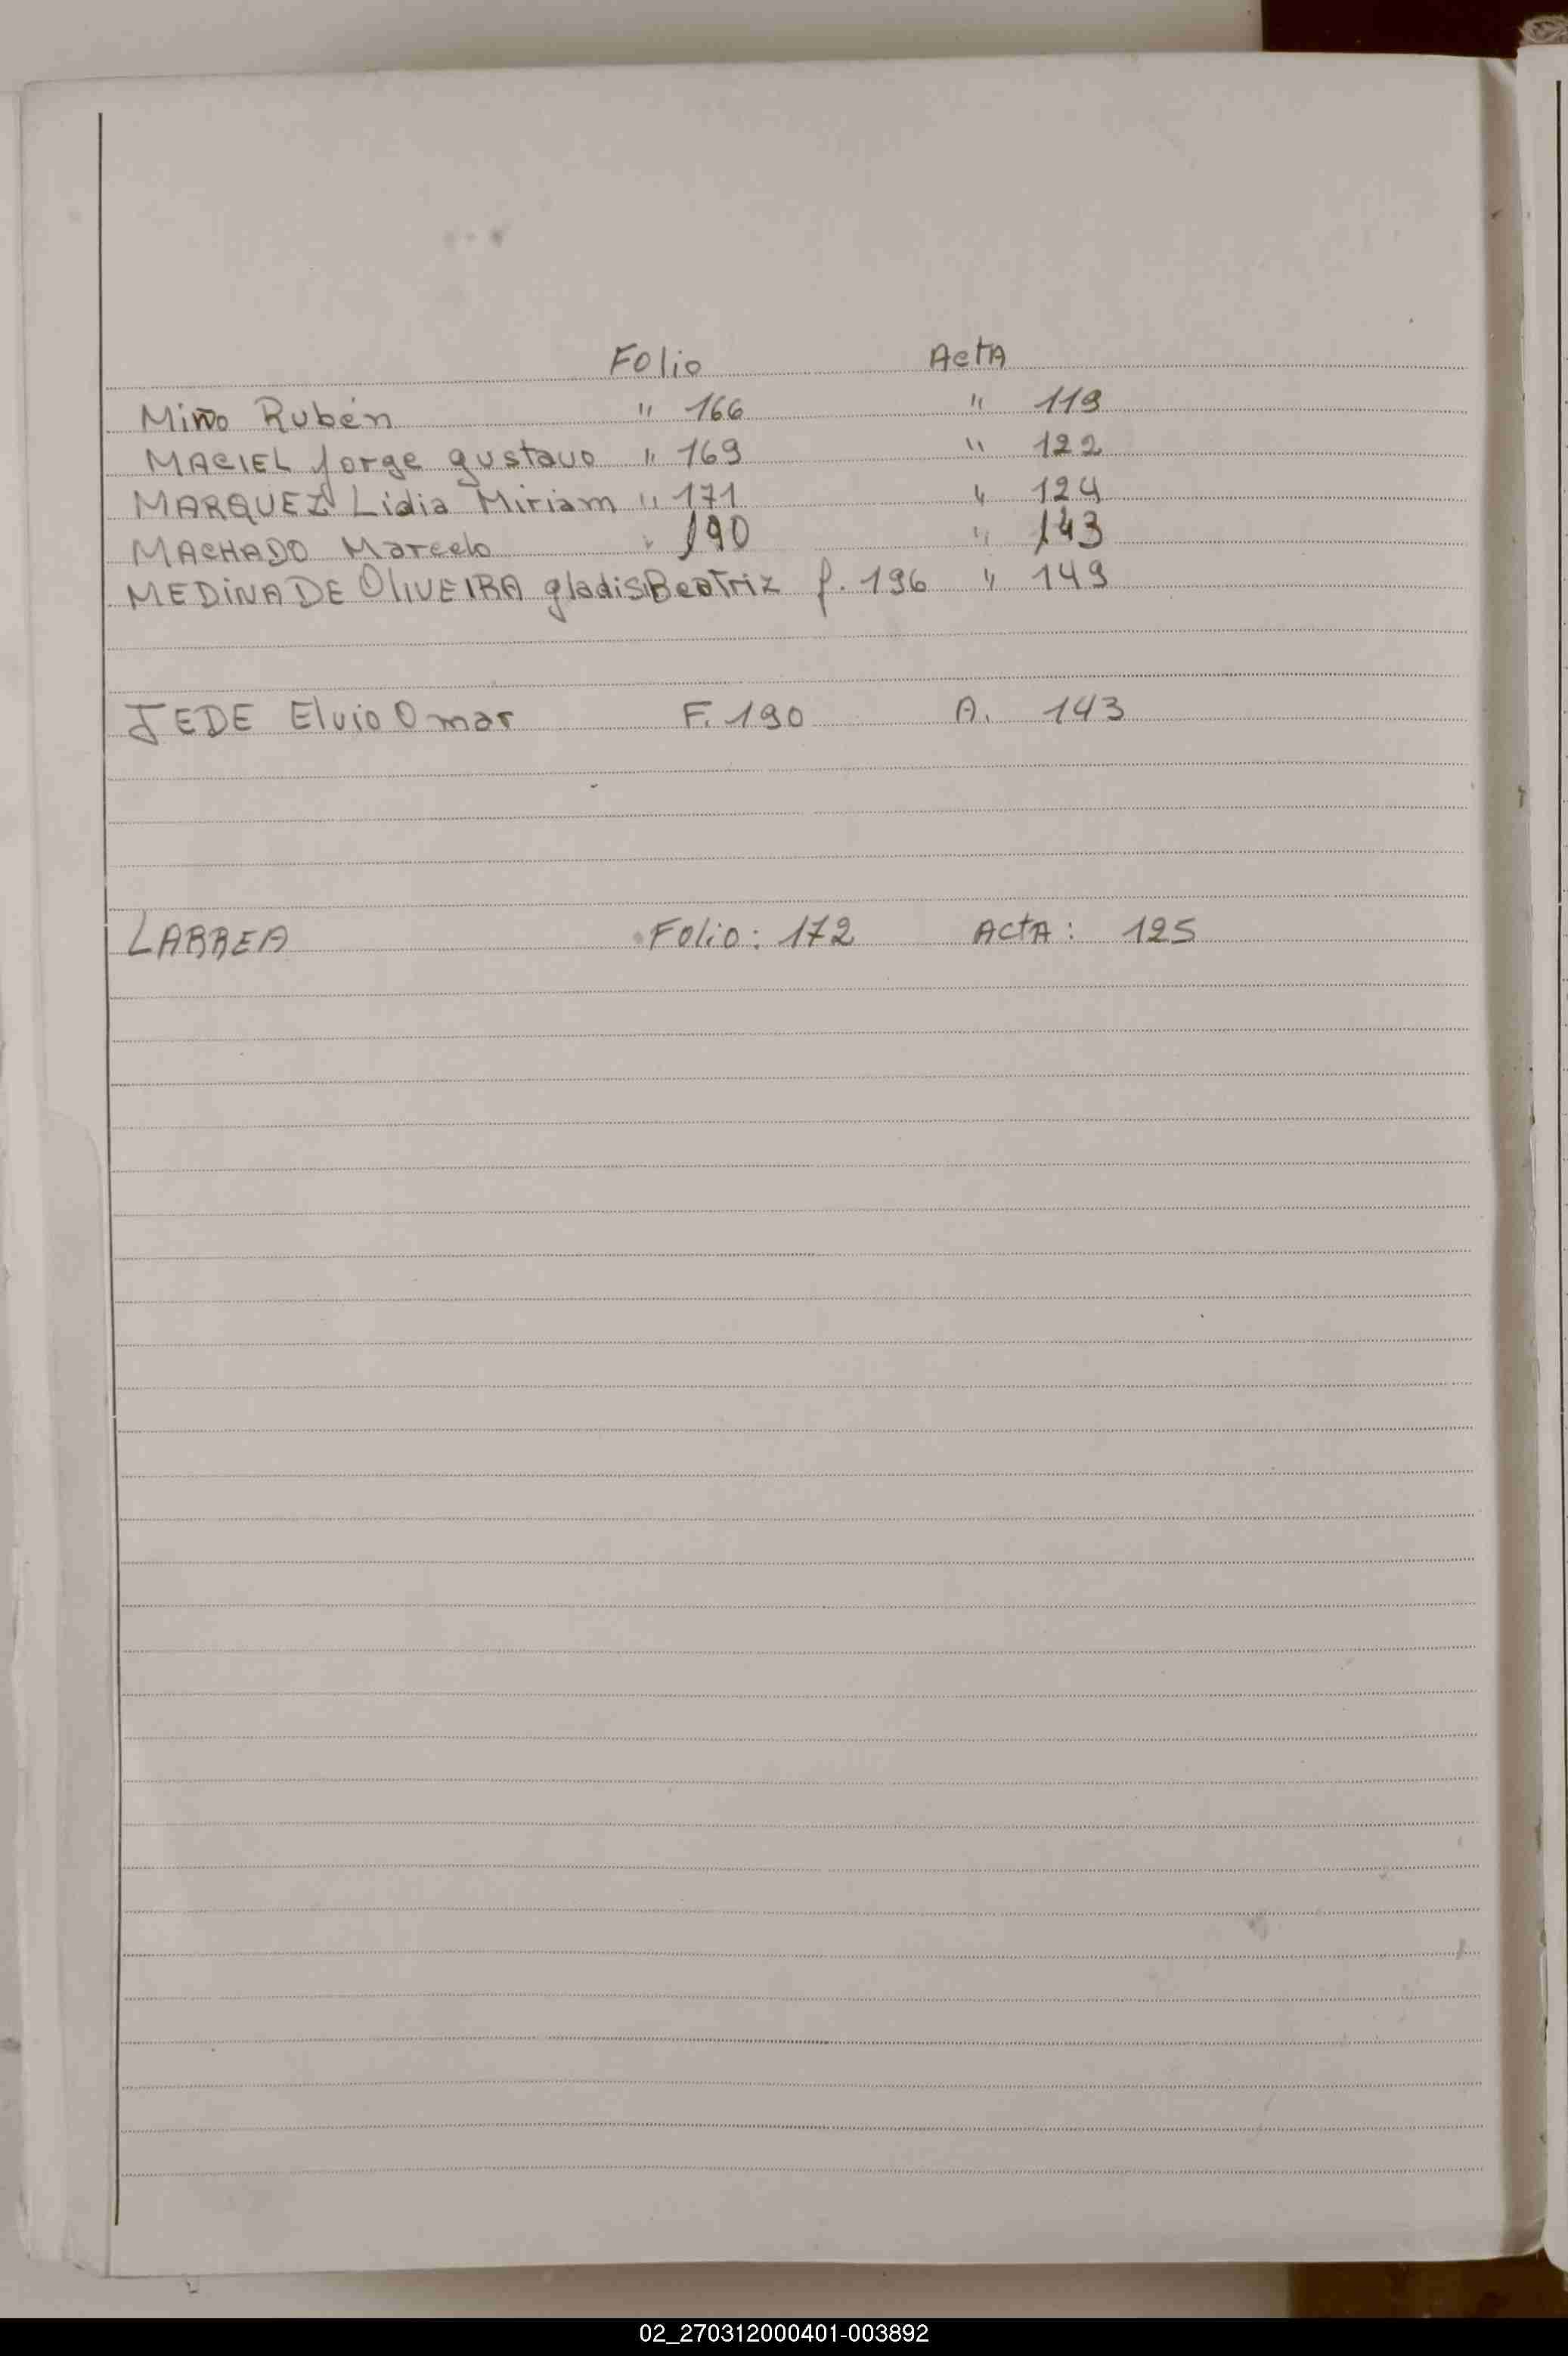 Folio Acta
Miño Rubén " 166 " 119
MACIEL Jorge gustavo " 169 " 122
MARQUEZ Lidia Miriam " 171 " 124
MACHADO Marcelo " 190 " 143
MEDINA DE OLIVEIRA gladis Beatriz f. 196 " 149
JEDE Elvio Omar F. 190 A. 143
LARREA Folio: 172 Acta: 125
02_270312000401-003892